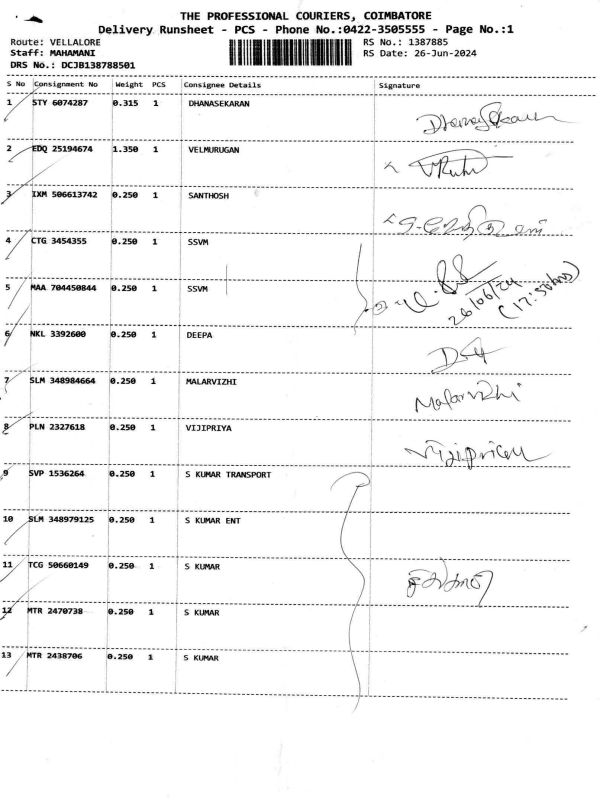 THE PROFESSIONAL COURIERS, COIMBATORE
Delivery Runsheet - PCS - Phone No.:0422-3505555 - Page No.:1
Route: VELLALORE RS No.: 1387885
Staff: MAHAMANI RS Date: 26-Jun-2024
DRS No.: DCJB138788501
S No Consignment No Weight PCS Consignee Details Signature
1 STY 6074287 0.315 1 DHANASEKARAN
Dhanasekaran
2 EDQ 25194674 1.350 1 VELMURUGAN
3 IXM 506613742 0.250 1 SANTHOSH
4 CTG 3454355 0.250 1 SSVM
5 MAA 704450844 0.250 1 SSVM
26/06/24
(17:50hrs)
6 NKL 3392600 0.250 1 DEEPA
7 SLM 348984664 0.250 1 MALARVIZHI
Malarvizhi
8 PLN 2327618 0.250 1 VIJIPRIYA
9 SVP 1536264 0.250 1 S KUMAR TRANSPORT
10 SLM 348979125 0.250 1 S KUMAR ENT
11 TCG 50660149 0.250 1 S KUMAR
12 MTR 2470738 0.250 1 S KUMAR
13 MTR 2438706 0.250 1 S KUMAR